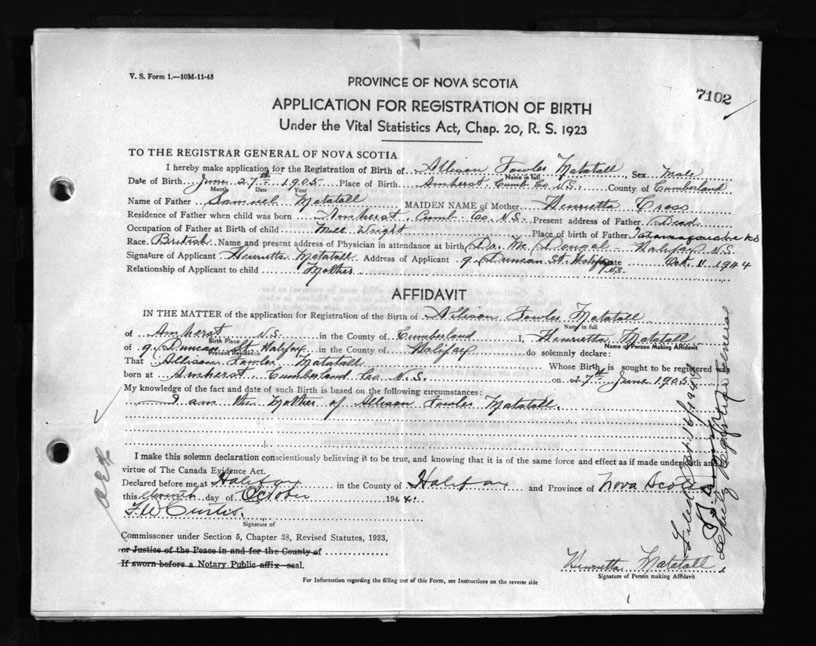 V. S. Form 1.—10M-11-43
7102
PROVINCE OF NOVA SCOTIA
APPLICATION FOR REGISTRATION OF BIRTH
Under the Vital Statistics Act, Chap. 20, R. S. 1923
TO THE REGISTRAR GENERAL OF NOVA SCOTIA
I hereby make application for the Registration of Birth of Allison Fowler Matatall, Sex Male
Name in full
Date of Birth June 27th 1905 Place of Birth Amherst Cumb. Co. N.S. County of Cumberland
Month Date Year
Name of Father Samuel Matatall MAIDEN NAME of Mother Henrietta Cross
Residence of Father when child was born Amherst Cumb Co. N.S. Present address of Father Dead
Occupation of Father at Birth of child Mill Wright Place of birth of Father
Race British Name and present address of Physician in attendance at birth Dr. Mc Halifax N.S.
Signature of Applicant Henrietta Matatall Address of Applicant 9 Duncan St. Halifax N.S. Date Oct. 11 1944
Relationship of Applicant to child Mother
AFFIDAVIT
IN THE MATTER of the application for Registration of the Birth of Allison Fowler Matatall
Name in full
of Amherst N.S. in the County of Cumberland I, Henrietta Matatall
Birth Place Name of Person Making Affidavit
of 9 Duncan St. Halifax in the County of Halifax do solemnly declare:
Present Residence
That Allison Fowler Matatall Whose Birth is sought to be registered was
born at Amherst Cumberland Co. N.S. on 27th June 1905
My knowledge of the fact and date of such Birth is based on the following circumstances:
I am the Mother of Allison Fowler Matatall.
I make this solemn declaration conscientiously believing it to be true, and knowing that it is of the same force and effect as if made under oath and
virtue of The Canada Evidence Act.
Declared before me at Halifax in the County of Halifax and Province of Nova Scotia
this eleventh day of October 1944.
F.W. Curtis.
Signature of
Commissioner under Section 5, Chapter 38, Revised Statutes, 1923,
or Justice of the Peace in and for the County of
If sworn before a Notary Public affix seal.
Henrietta Matatall
Signature of Person making Affidavit
For Information regarding the filling out of this Form, see Instructions on the reverse side
Filed Oct 16/1944
Deputy Registrar General